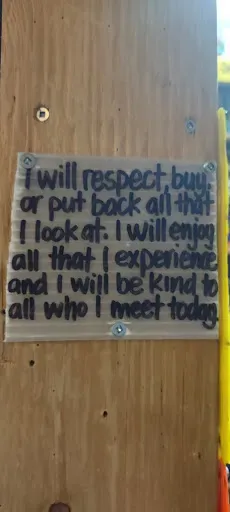 I will respect, buy,
or put back all that
I look at. I will enjoy
all that I experience
and I will be kind to
all who I meet today.